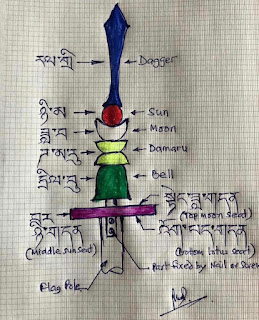 རལ་གྲི
Dagger
ཉི་མ
Sun
ཟླ་བ
Moon
ཌ་མ་རུ
Damaru
དྲིལ་བུ
Bell
(Top moon seat)
(Middle sun seat)
(Bottom lotus seat)
Flag Pole
Part fixed by Nail or Screw